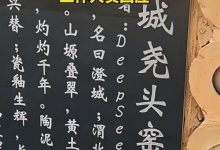 城尧头窑
者：DeepSee
，名曰澄城；渭北
。山塬叠翠，黄土
，灼灼千年。陶泥
兴替；瓷釉生辉，长